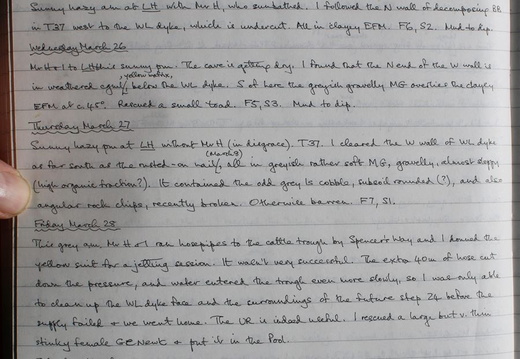 Sunny hazy am at LH with Mr H, who sunbathed. I followed the N wall of decomposing BB
in T37 west to the WL dyke, which is undercut. All in clayey EFM. F6, S2. Mud to dip.
Wednesday March 26
Mr H + I to LH this sunny pm. The cave is getting dry. I found that the N end of the W wall is
in weathered
yellow matrix,
below the WL dyke. S of here the greyish gravelly MG overlies the clayey
EFM at c. 45°. Rescued a small toad. F5, S3. Mud to dip.
Thursday March 27
Sunny hazy pm at LH without Mr H (in disgrace). T37. I cleared the W wall of WL dyke
as far south as the rusted-on nail
(March 9)
, all in greyish rather soft MG, gravelly, almost sloppy
(high organic fraction?). It contained the odd grey ls cobble, subsoil rounded (?), and also
angular rock chips, recently broken. Otherwise barren. F7, S1.
Friday March 28
This grey am Mr H + I ran hosepipes to the cattle trough by Spencer's Way and I donned the
yellow suit for a jetting session. It wasn't very successful. The extra 40m of hose cut
down the pressure, and water entered the trough even more slowly, so I was only able
to clean up the WL dyke face and the surroundings of the future step 24 before the
supply failed + we went home. The UR is indeed useful. I rescued a large but v. thin
stinky female GC Newt + put it in the Pool.